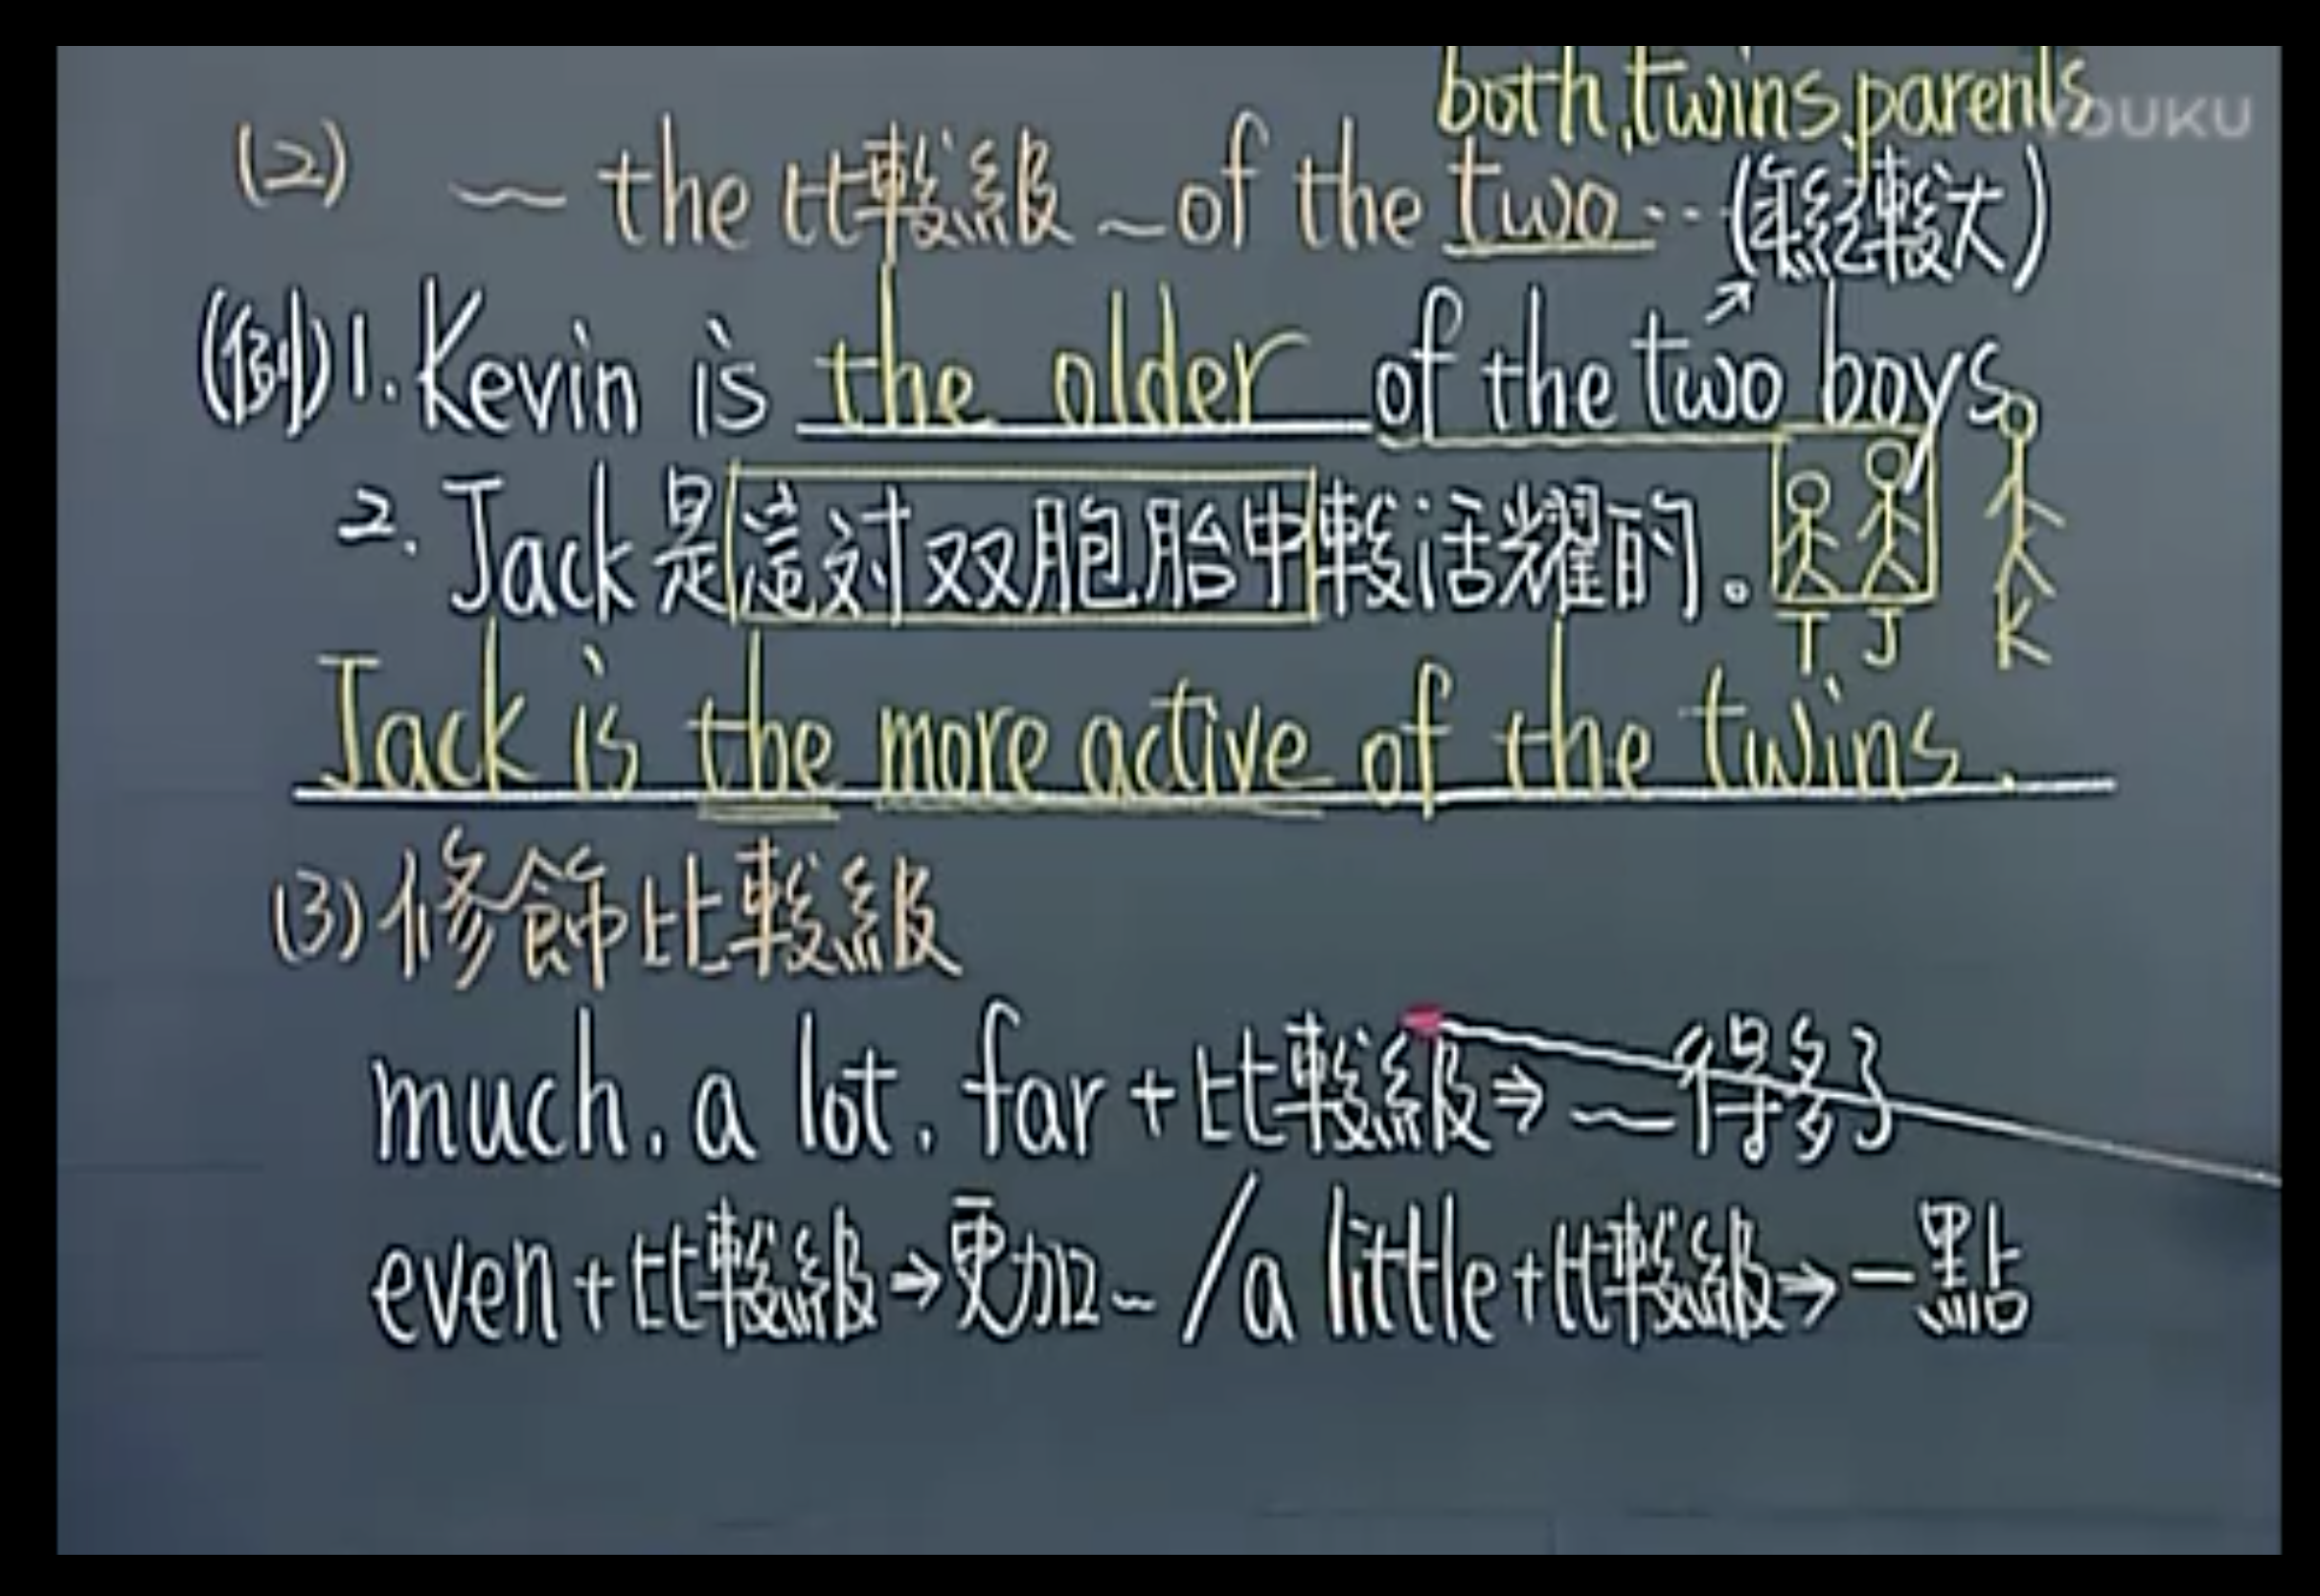 both,twins,parents
YOUKU
(2) ～ the 比較級 ～of the two‥(年紀較大)
(例)1. Kevin is the older of the two boys.
2. Jack是這对双胞胎中較活耀的。
T J K
Jack is the more active of the twins.
(3)修飾比較級
much. a lot. far + 比較級⇒ ～得多了
even+比較級→更加～/a little+比較級→一點